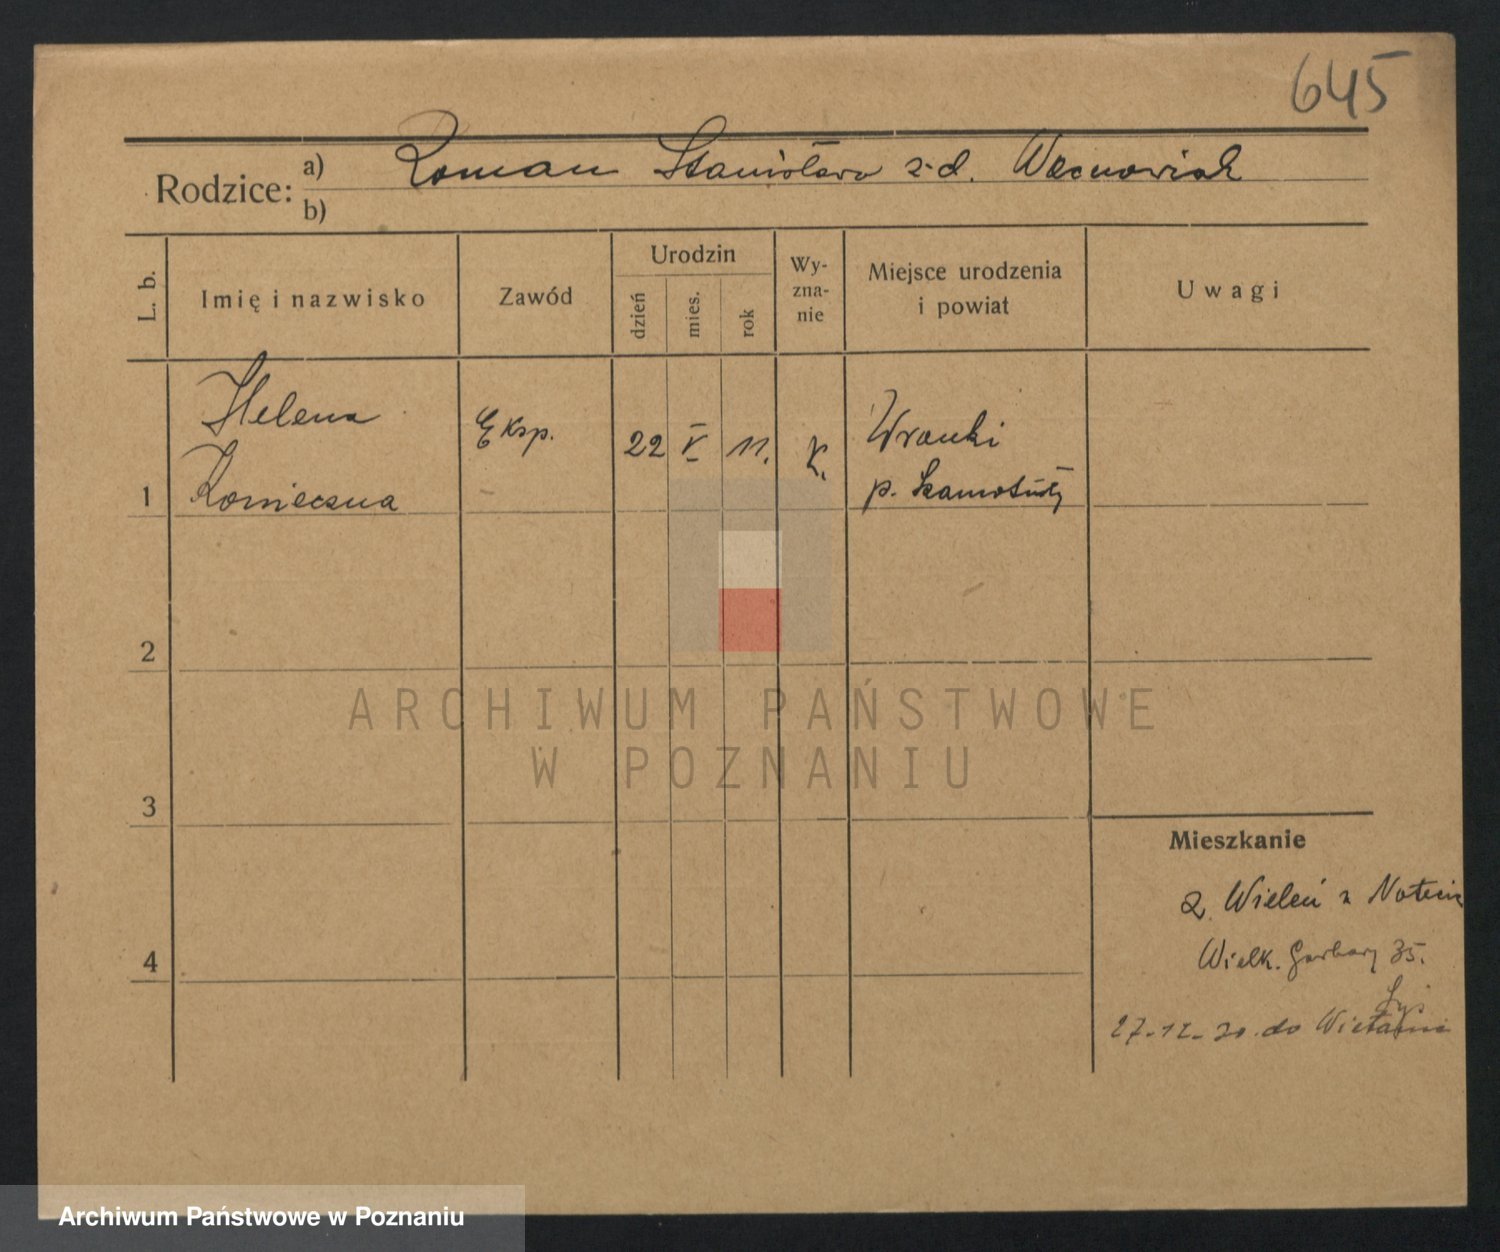 645
Rodzice: a) Roman Stanisława z d. Wacnowiak
b)
L. b.
Imię i nazwisko
Zawód
Urodzin
dzień
mies.
rok
Wy-
zna-
nie
Miejsce urodzenia
i powiat
Uwagi
1
Helena
Konieczna
Eksp.
22
V
11.
K.
Wronki
p. Szamotuły
2
ARCHIWUM PAŃSTWOWE
W POZNANIU
3
Mieszkanie
z Wieleń n Notecią
Wielk. Garbary 35.
4
27-12-30. do
Archiwum Państwowe w Poznaniu